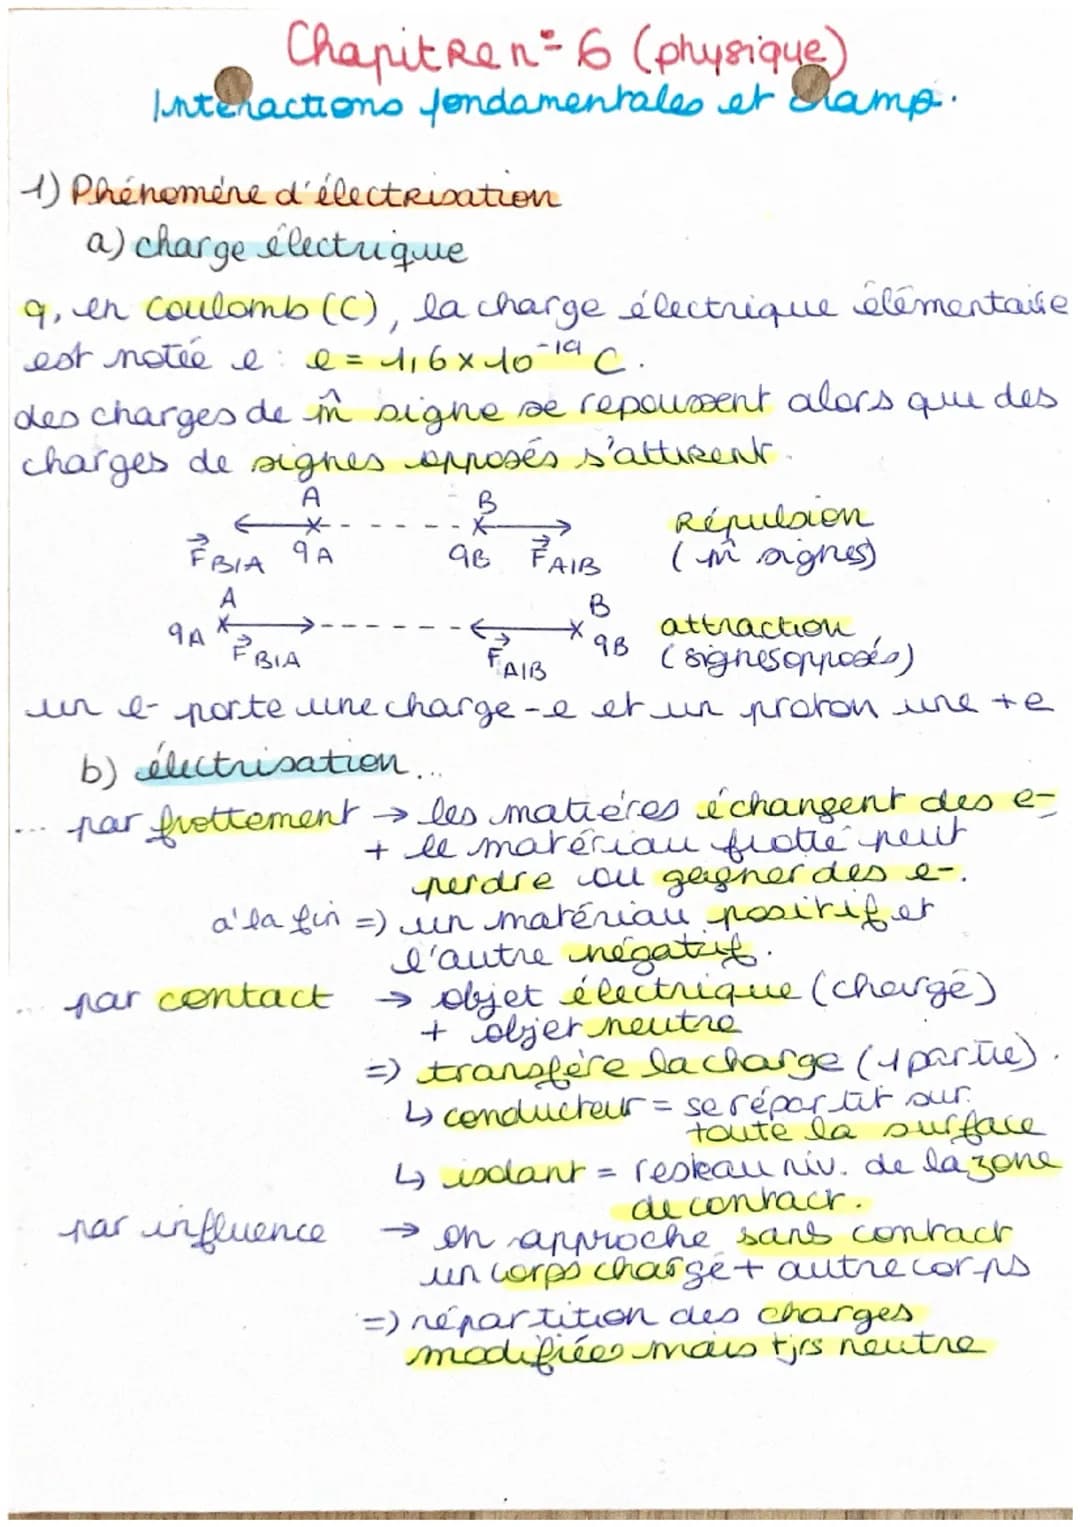 Chapitre n° 6 (physique)
Interactions fondamentales et champ.
1) Phénomène d'électrisation
a) charge électrique
q, en coulomb (C), la charge électrique élémentaire
est notée e : e = 1,6 × 10⁻¹⁹ C.
des charges de m̂ signe se repoussent alors que des
charges de signes opposés s'attirent.
A B
Répulsion
F⃗ B/A qA qB F⃗ A/B (m̂ signes)
A B
qA F⃗ B/A F⃗ A/B qB attraction
(signes opposés)
un e- porte une charge -e et un proton une +e
b) électrisation...
... par frottement → les matières échangent des e-
+ le matériau frotté peut
perdre ou gagner des e-.
à la fin => un matériau positif et
l'autre négatif.
... par contact → objet électrique (chargé)
+ objet neutre
=> transfère la charge (1 partie).
↳ conducteur = se répartit sur
toute la surface
↳ isolant = reste au niv. de la zone
de contact.
par influence → on approche sans contact
un corps chargé + autre corps
=> répartition des charges
modifiées mais tjrs neutre